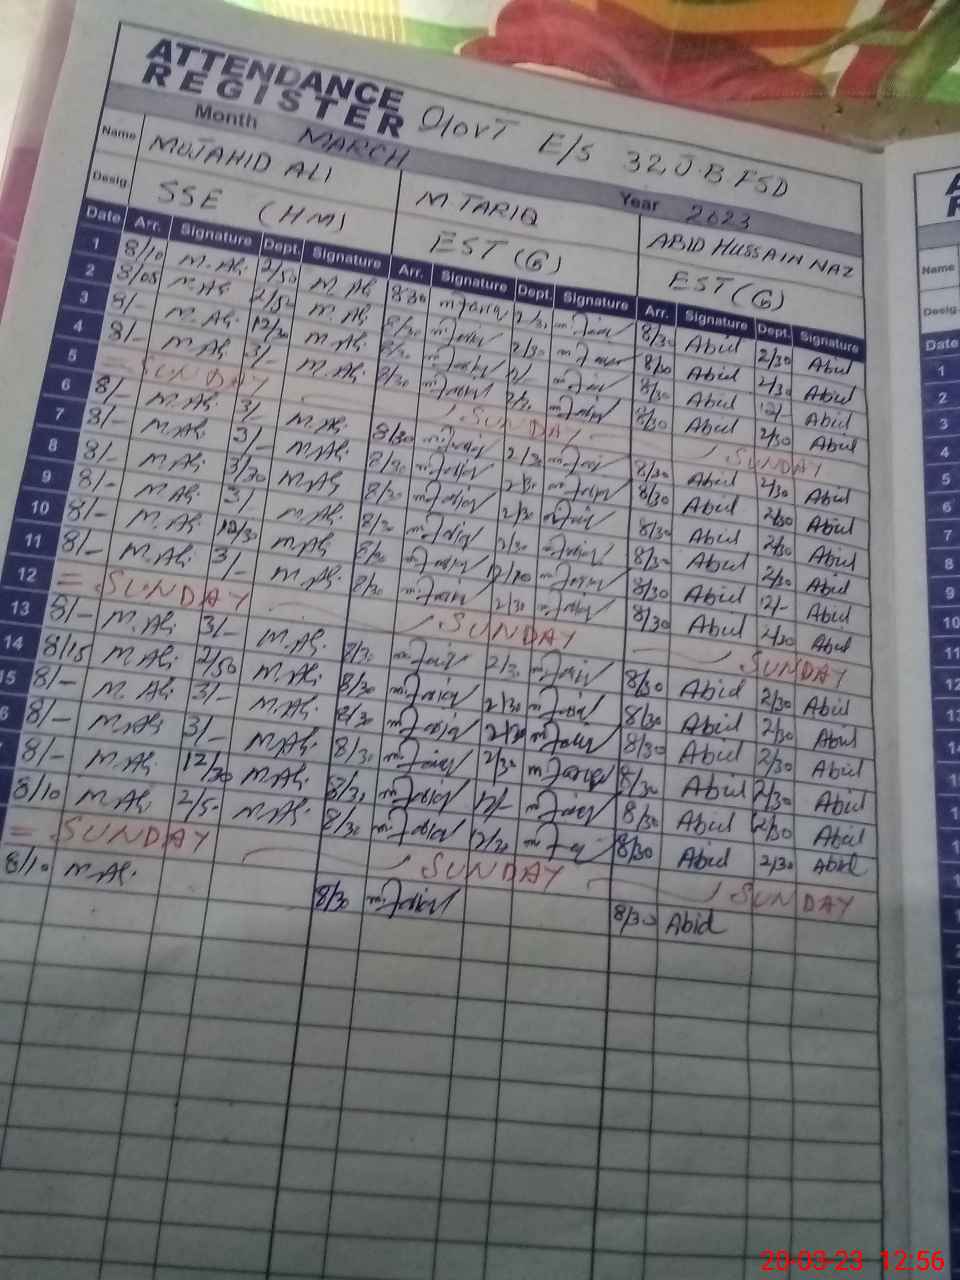 ATTENDANCE
REGISTER
Govt E/S 32 J.B FSD
Month MARCH Year 2023
Name MUJAHID ALI M. TARIQ ABID HUSSAIN NAZ
Desig. SSE (HM) EST (G) EST (G)
Date Arr. Signature Dept. Signature Arr. Signature Dept. Signature Arr. Signature Dept. Signature
1 8/10 M. Ali 2/50 M. Ali 8/30 m.Tariq 2/30 8/30 Abid 2/30 Abid
2 8/05 M. Ali 2/50 M. Ali 8/30 2/30 8/30 Abid 2/30 Abid
3 8/- M. Ali 12/30 M. Ali 8/30 12/- 8/30 Abid 12/- Abid
4 8/- M. Ali 3/- M. Ali 8/30 2/30 8/30 Abid 2/30 Abid
5 = SUNDAY SUNDAY SUNDAY
6 8/- M. Ali 3/- M. Ali 8/30 2/30 8/30 Abid 2/30 Abid
7 8/- M. Ali 3/- M. Ali 8/30 2/30 8/30 Abid 2/30 Abid
8 8/- M. Ali 3/30 M. Ali 8/30 2/30 8/30 Abid 2/30 Abid
9 8/- M. Ali 3/ M. Ali 8/30 2/30 8/30 Abid 2/30 Abid
10 8/- M. Ali 12/30 M. Ali 8/30 8/30 Abid 12/- Abid
11 8/- M. Ali 3/- M. Ali 8/30 2/30 8/30 Abid 2/30 Abid
12 = SUNDAY SUNDAY SUNDAY
13 8/- M. Ali 3/- M. Ali 8/30 2/30 8/30 Abid 2/30 Abid
14 8/15 M. Ali 2/50 M. Ali 8/30 2/30 8/30 Abid 2/30 Abid
15 8/- M. Ali 3/- M. Ali 8/30 2/30 8/30 Abid 2/30 Abid
6 8/- M. Ali 3/- M. Ali 8/30 2/30 8/30 Abid 2/30 Abid
8/- M. Ali 12/30 M. Ali 8/30 12/- 8/30 Abid 12/30 Abid
8/10 M. Ali 2/50 M. Ali 8/30 2/30 8/30 Abid 2/30 Abid
= SUNDAY SUNDAY SUNDAY
8/10 M. Ali 8/30 8/30 Abid
Name
Desig.
Date
1
2
3
4
5
6
7
8
9
10
11
12
13
20-03-23 12:56